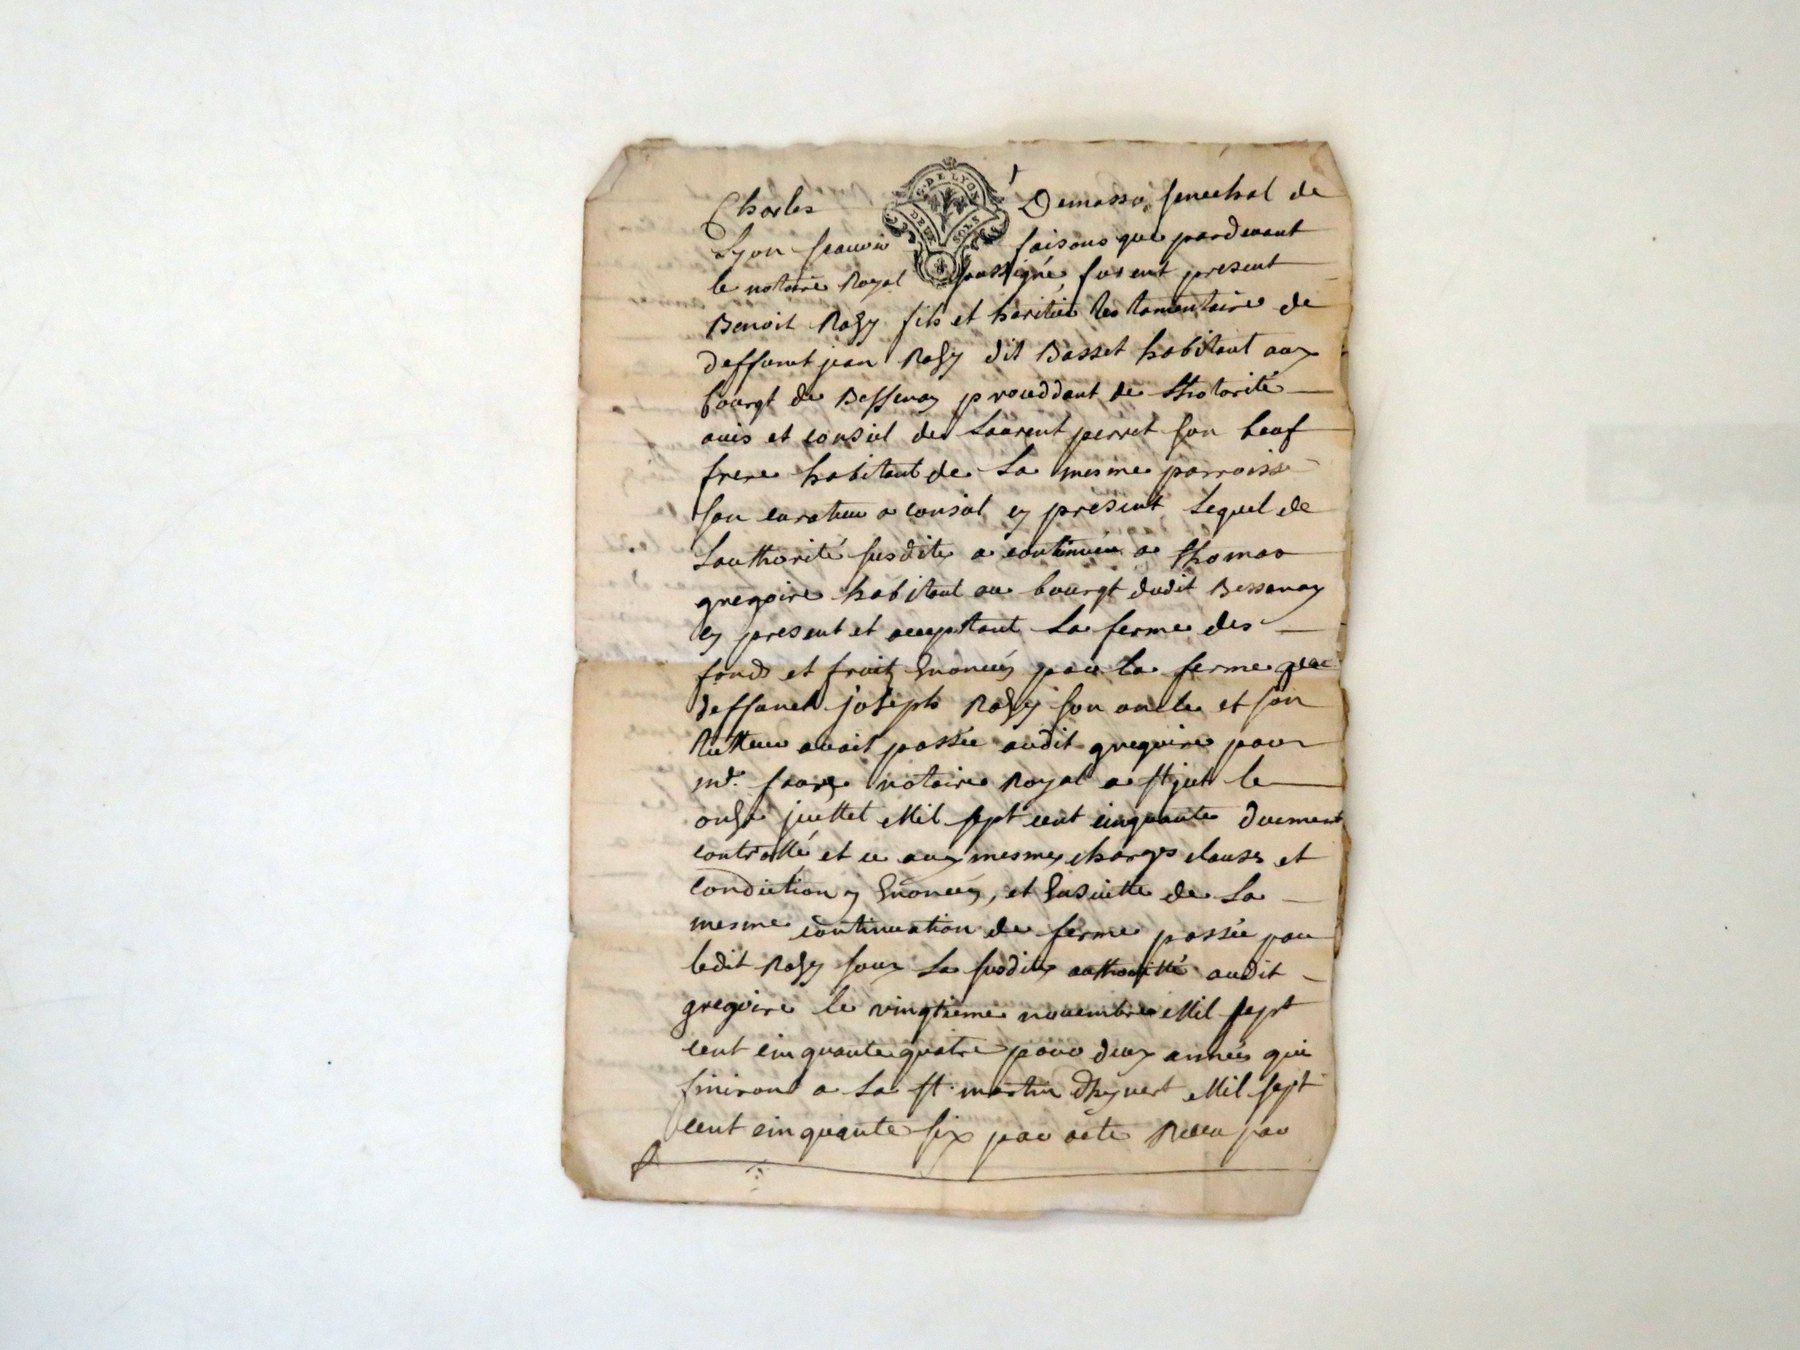 G. DE LYON
DEUX SOLS
Charles Demasso senechal de
Lyon scavoir faisons que pardevant
le notaire Royal soussigné, furent present
Benoit Rozy fils et heritier testamentaire de
deffunt jean Rozy dit Basset habitant au
bourgt de Bessenay proceddant de Lhotorité
avis et conseil de Laurent perret son beauf
frere habitant de La mesme parroisse
son curateur a conseil cy présent Lequel de
Lauthorité susdite a continuée a Thomas
gregoire habitant au bourgt dudit Bessenay
cy present et acceptant La ferme des
fonds et fruitz Enoncés par la ferme que
deffunct joseph Rozy son oncle et son
tutteur avoit passée audit gregoire par
me. notaire Royal a st just le
onze juillet Mil sept cent cinquante duement
controllé et ce aux mesmes charges clauses et
condiction y Enoncés, et Ensuitte de La
mesme continuation de ferme passée par
ledit Rozy sous La susditte authoritté audit
gregoire le vingtieme novembre Mil sept
cent cinquante quatre pour deux années qui
finiront a La st. martin dhyvert Mil sept
cent cinquante six par acte Receu par